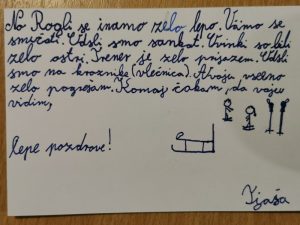 Na Rogli se imamo zelo lepo. Učimo se
smučati. Udsli smo sankat. Uvinki so bili
zelo ostri. Trener je zelo prijazen. Udsli
smo na krožnike (vlečnica). A vaju vseeno
zelo pogrešam. Komaj čakam, da vaju
vidim,
lepe pozdrave!
Tjaša